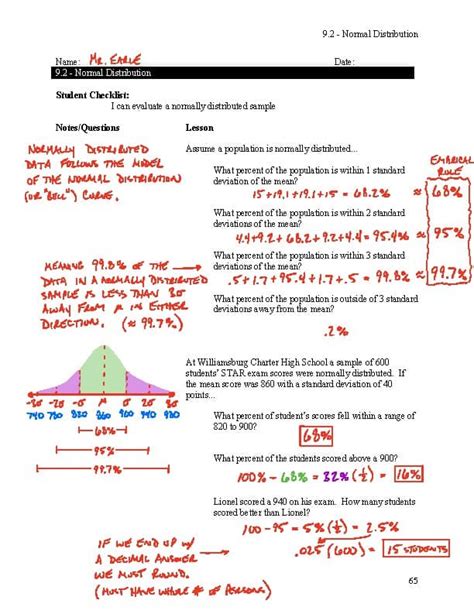 9.2 - Normal Distribution
Name: MR. EARLE Date:
9.2 - Normal Distribution
Student Checklist:
I can evaluate a normally distributed sample
Notes/Questions Lesson
NORMALLY DISTRIBUTED
DATA FOLLOWS THE MODEL
OF THE NORMAL DISTRIBUTION
(OR "BELL") CURVE.
Assume a population is normally distributed...
EMPIRICAL
RULE
What percent of the population is within 1 standard
deviation of the mean?
15+19.1+19.1+15 = 68.2% ≈ 68%
What percent of the population is within 2 standard
deviations of the mean?
4.4+9.2+68.2+9.2+4.4 = 95.4% ≈ 95%
What percent of the population is within 3 standard
deviations of the mean?
.5+1.7+95.4+1.7+.5 = 99.8% ≈ 99.7%
MEANING 99.8% OF THE
DATA IN A NORMALLY DISTRIBUTED
SAMPLE IS LESS THAN 3σ
AWAY FROM μ IN EITHER
DIRECTION. (≈ 99.7%)
What percent of the population is outside of 3 standard
deviations away from the mean?
.2%
-3σ -2σ -σ μ σ 2σ 3σ
740 780 820 860 900 940 980
68%
95%
99.7%
At Williamsburg Charter High School a sample of 600
students' STAR exam scores were normally distributed. If
the mean score was 860 with a standard deviation of 40
points...
What percent of student's scores fell within a range of
820 to 900?
68%
What percent of the students scored above a 900?
100% - 68% = 32% (½) = 16%
Lionel scored a 940 on his exam. How many students
scored better than Lionel?
100 - 95 = 5% (½) = 2.5%
.025 (600) = 15 STUDENTS
IF WE END UP W/
A DECIMAL ANSWER
WE MUST ROUND.
(MUST HAVE WHOLE # OF PERSONS)
65